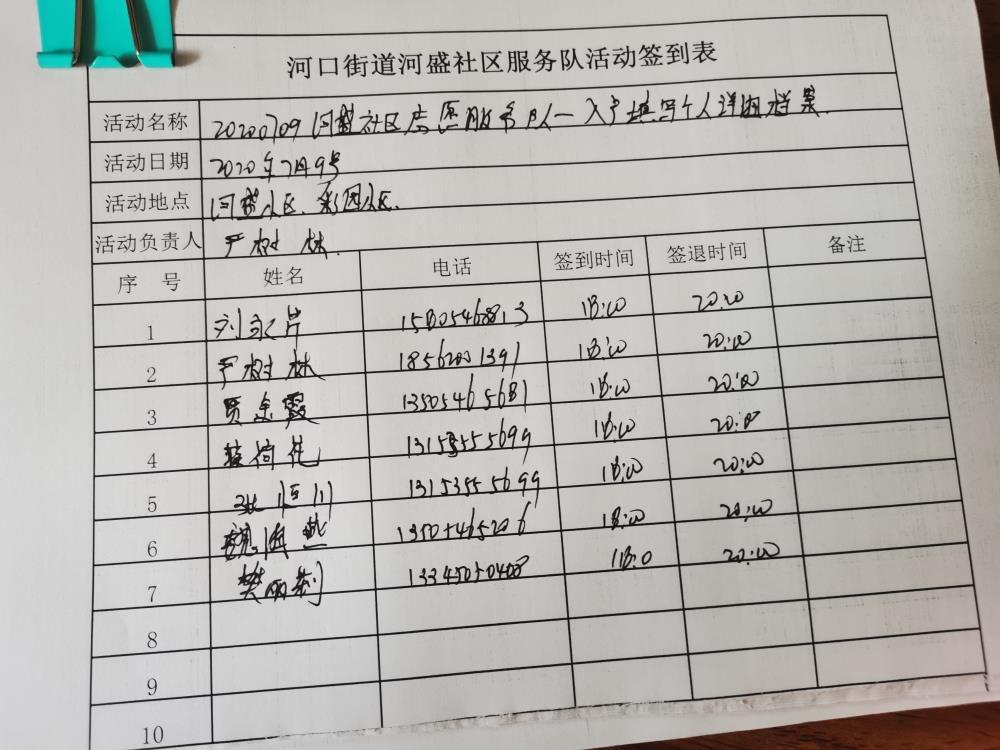 河口街道河盛社区服务队活动签到表
活动名称 20200709河盛社区志愿服务队—入户填写个人详细档案
活动日期 2020年7月9号
活动地点 河盛社区、彩园社区.
活动负责人 严树林.
序号 姓名 电话 签到时间 签退时间 备注
1 刘永芹 18:00 20:00
2 严树林 18562001391 18:00 20:00
3 贾余霞 13505465681 18:00 20:00
4 荷花 13153555699 18:00 20:00
5 张恒川 13153555699 18:00 20:00
6 魏海燕 13505465206 18:00 20:00
7 樊丽莉 13345050408 18:0 20:00
8
9
10